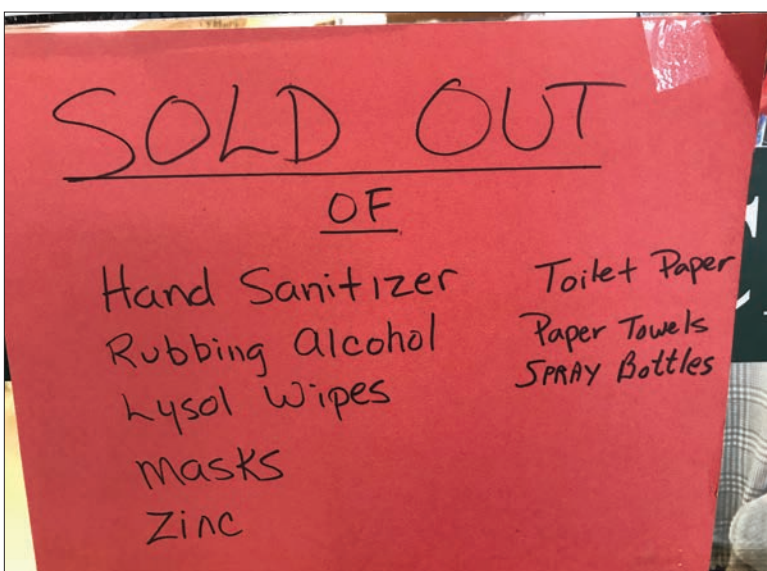 SOLD OUT
OF
Hand Sanitizer
Rubbing Alcohol
Lysol Wipes
masks
Zinc
Toilet Paper
Paper Towels
SPRAY Bottles